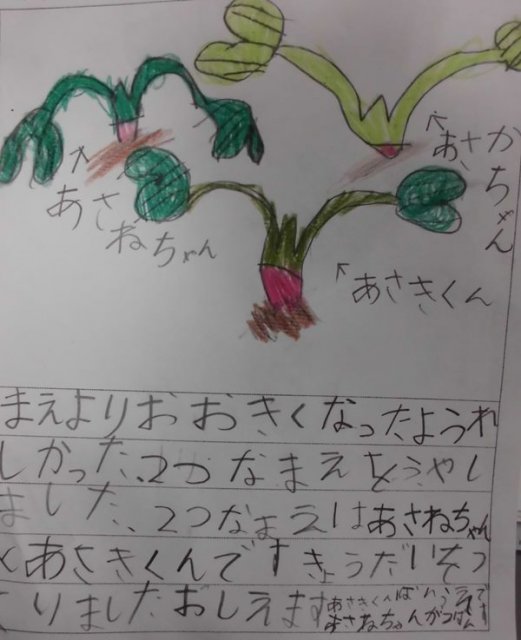 あさかちゃん
あさねちゃん
あさきくん
まえよりおおきくなったようれ
しかった、2つなまえをふやし
ました、2つなまえはあさねちゃん
とあさきくんですきょうだいそつ
くりましたおしえます
あさきくんは
あさねちゃんが